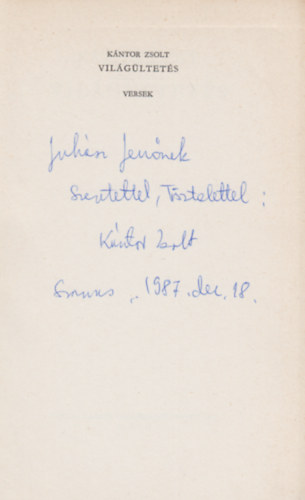 KÁNTOR ZSOLT
VILÁGÜLTETÉS
VERSEK
Juhász Jenőnek
Szeretettel, Tisztelettel:
Kántor Zsolt
1987. dec. 18.